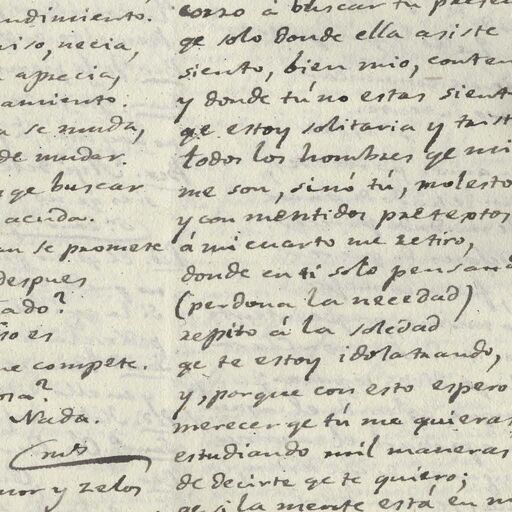 ndimiento.
niso, necia,
aprecia,
amiento.
se muda,
de mudar.
ge buscar
acuda.
an se promete
despues
tado?
so es
ue compete.
osa?
Nada.
mor y zelos
corro á buscar tu
qe solo donde ella asiste
siento, bien mio,
y donde tú no estas
qe estoy solitaria y
todos los hombres qe
me son, sinó tú,
y con mentidos pretextos
á mi cuarto me retiro,
donde en ti solo
(perdona la necedad)
repito á la soledad
qe te estoy idolatrando,
y, porque con esto espero
merecer qe tú me quieras
estudiando mil maneras
de decirte qe te quiero;
qe si la mente está en